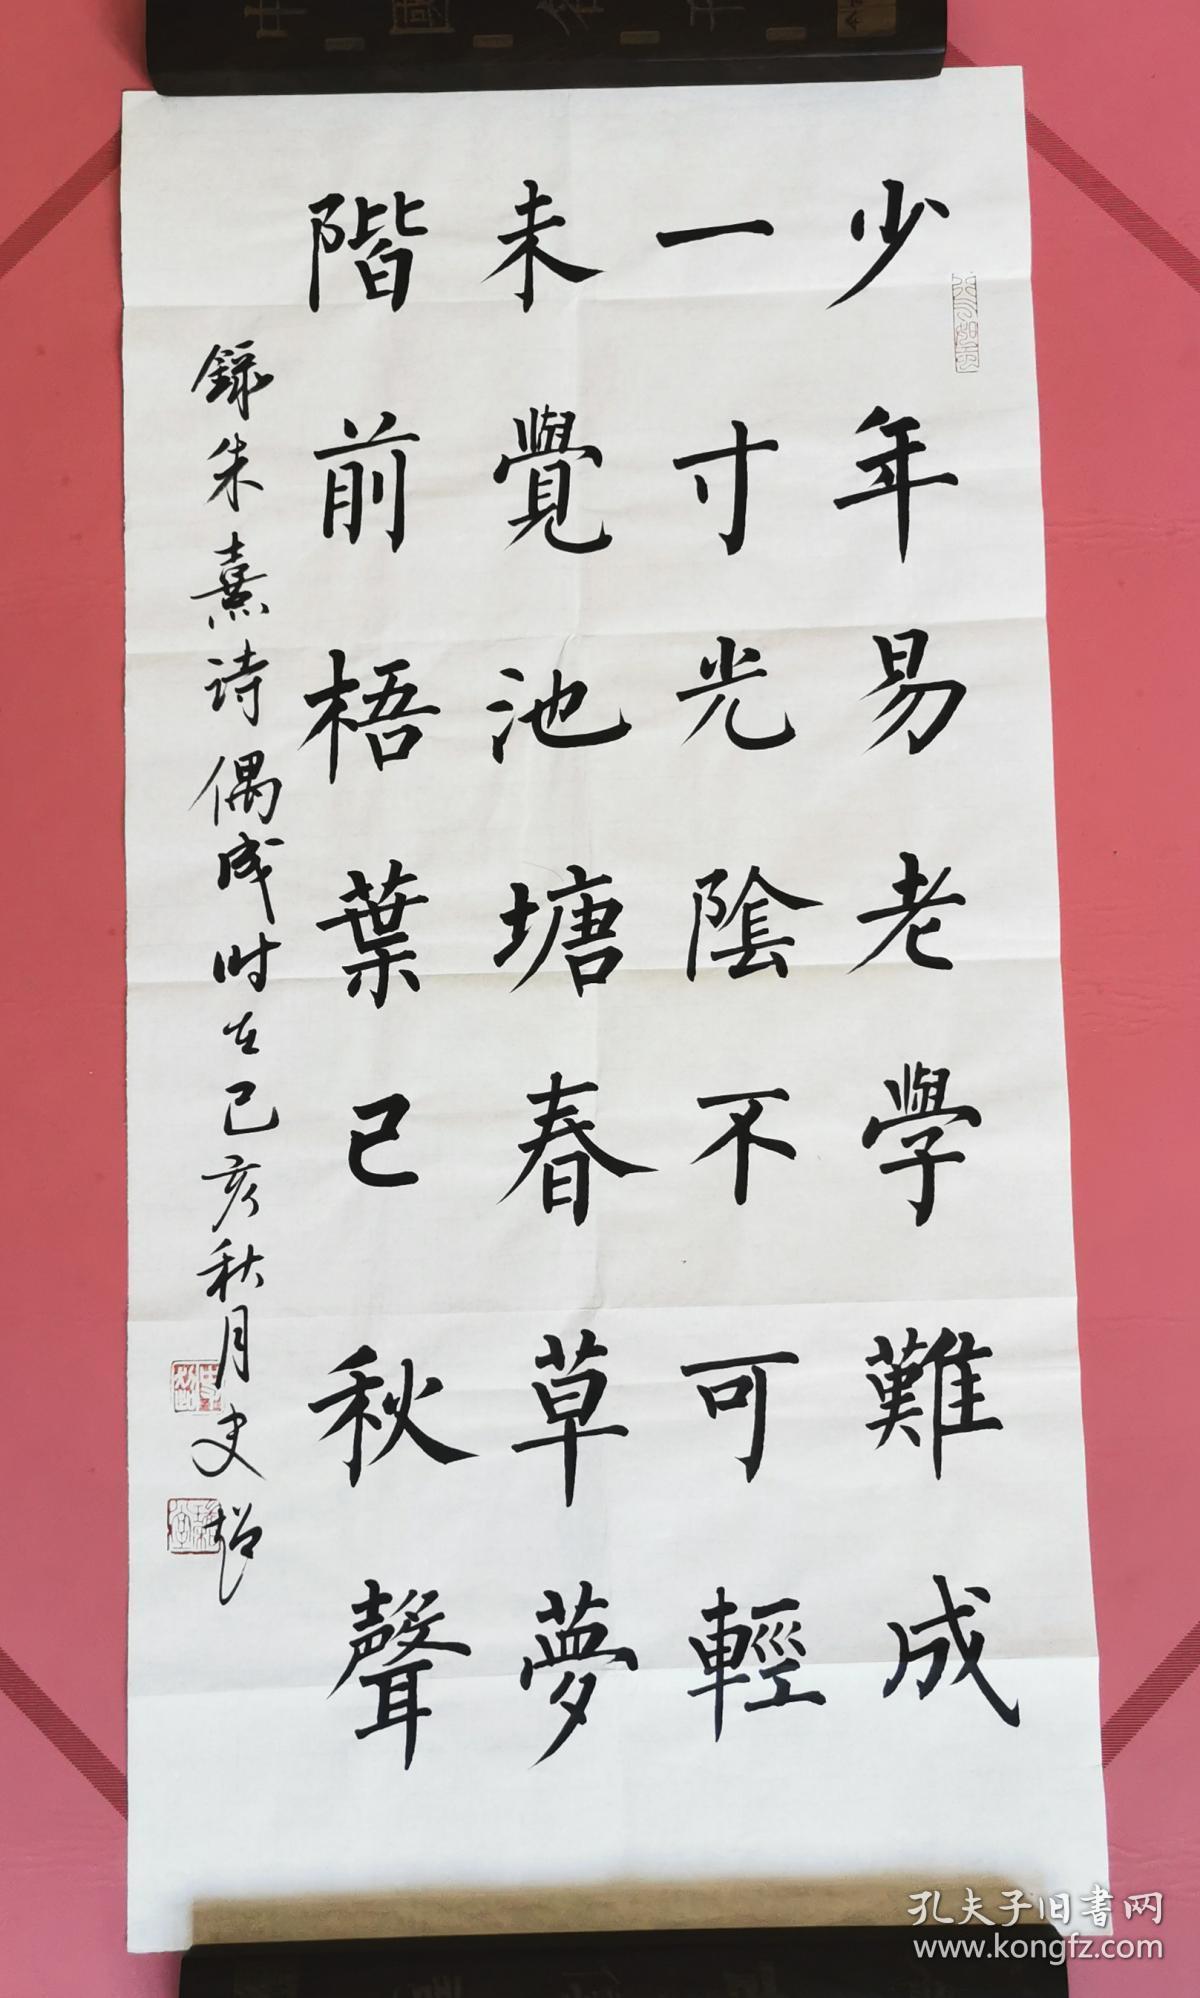 少年易老學難成
一寸光陰不可輕
未覺池塘春草夢
階前梧葉已秋聲
錄朱熹詩偶成时在己亥秋月史
孔夫子旧书网
www.kongfz.com